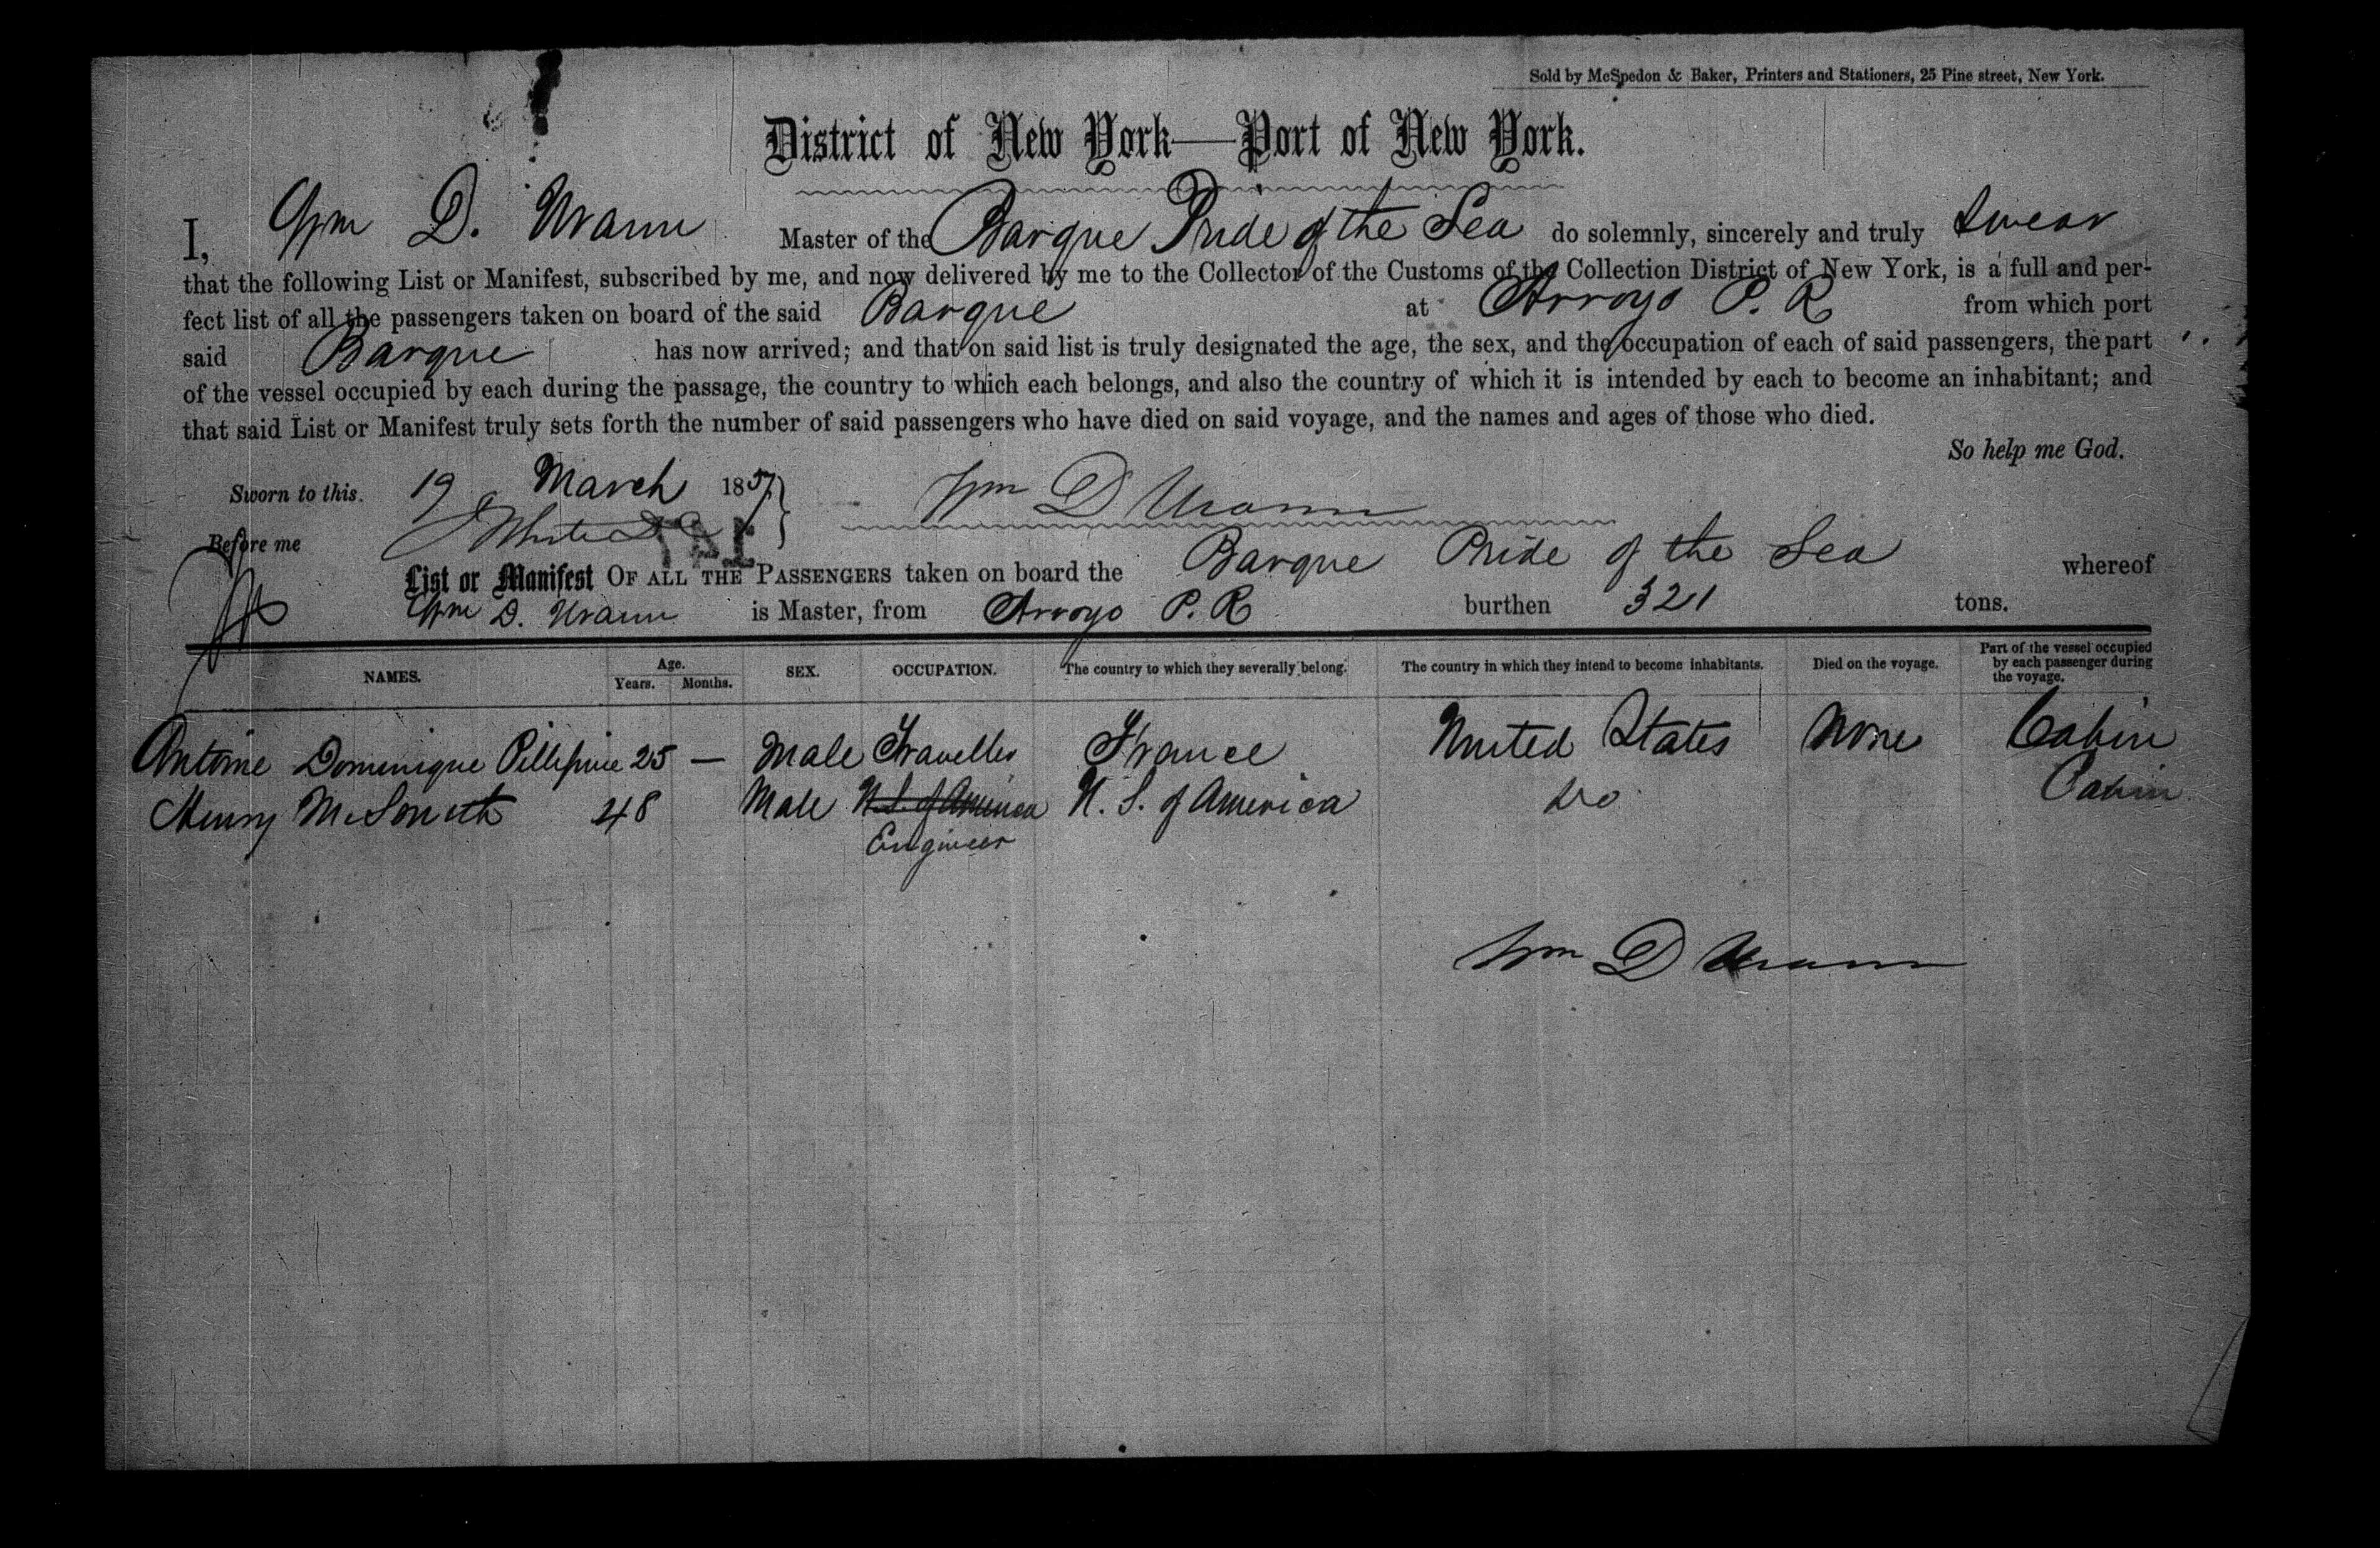 Sold by McSpedon & Baker, Printers and Stationers, 25 Pine street, New York.
District of New York—Port of New York.
I, Wm D. Urann Master of the Barque Pride of the Sea do solemnly, sincerely and truly swear
that the following List or Manifest, subscribed by me, and now delivered by me to the Collector of the Customs of the Collection District of New York, is a full and per-
fect list of all the passengers taken on board of the said Barque at Arroyo P. R from which port
said Barque has now arrived; and that on said list is truly designated the age, the sex, and the occupation of each of said passengers, the part
of the vessel occupied by each during the passage, the country to which each belongs, and also the country of which it is intended by each to become an inhabitant; and
that said List or Manifest truly sets forth the number of said passengers who have died on said voyage, and the names and ages of those who died.
So help me God.
Sworn to this. 19 March 1857 } Wm D Urann
Before me
List or Manifest OF ALL THE PASSENGERS taken on board the Barque Pride of the Sea whereof
Wm D. Urann is Master, from Arroyo P. R burthen 321 tons.
NAMES. Age. Years. Months. SEX. OCCUPATION. The country to which they severally belong. The country in which they intend to become inhabitants. Died on the voyage. Part of the vessel occupied by each passenger during the voyage.
Antoine Dominique 25 — Male Traveller France United States None Cabin
Henry 48 Male U. S. of America U. S. of America Do Cabin
Engineer
Wm D Urann